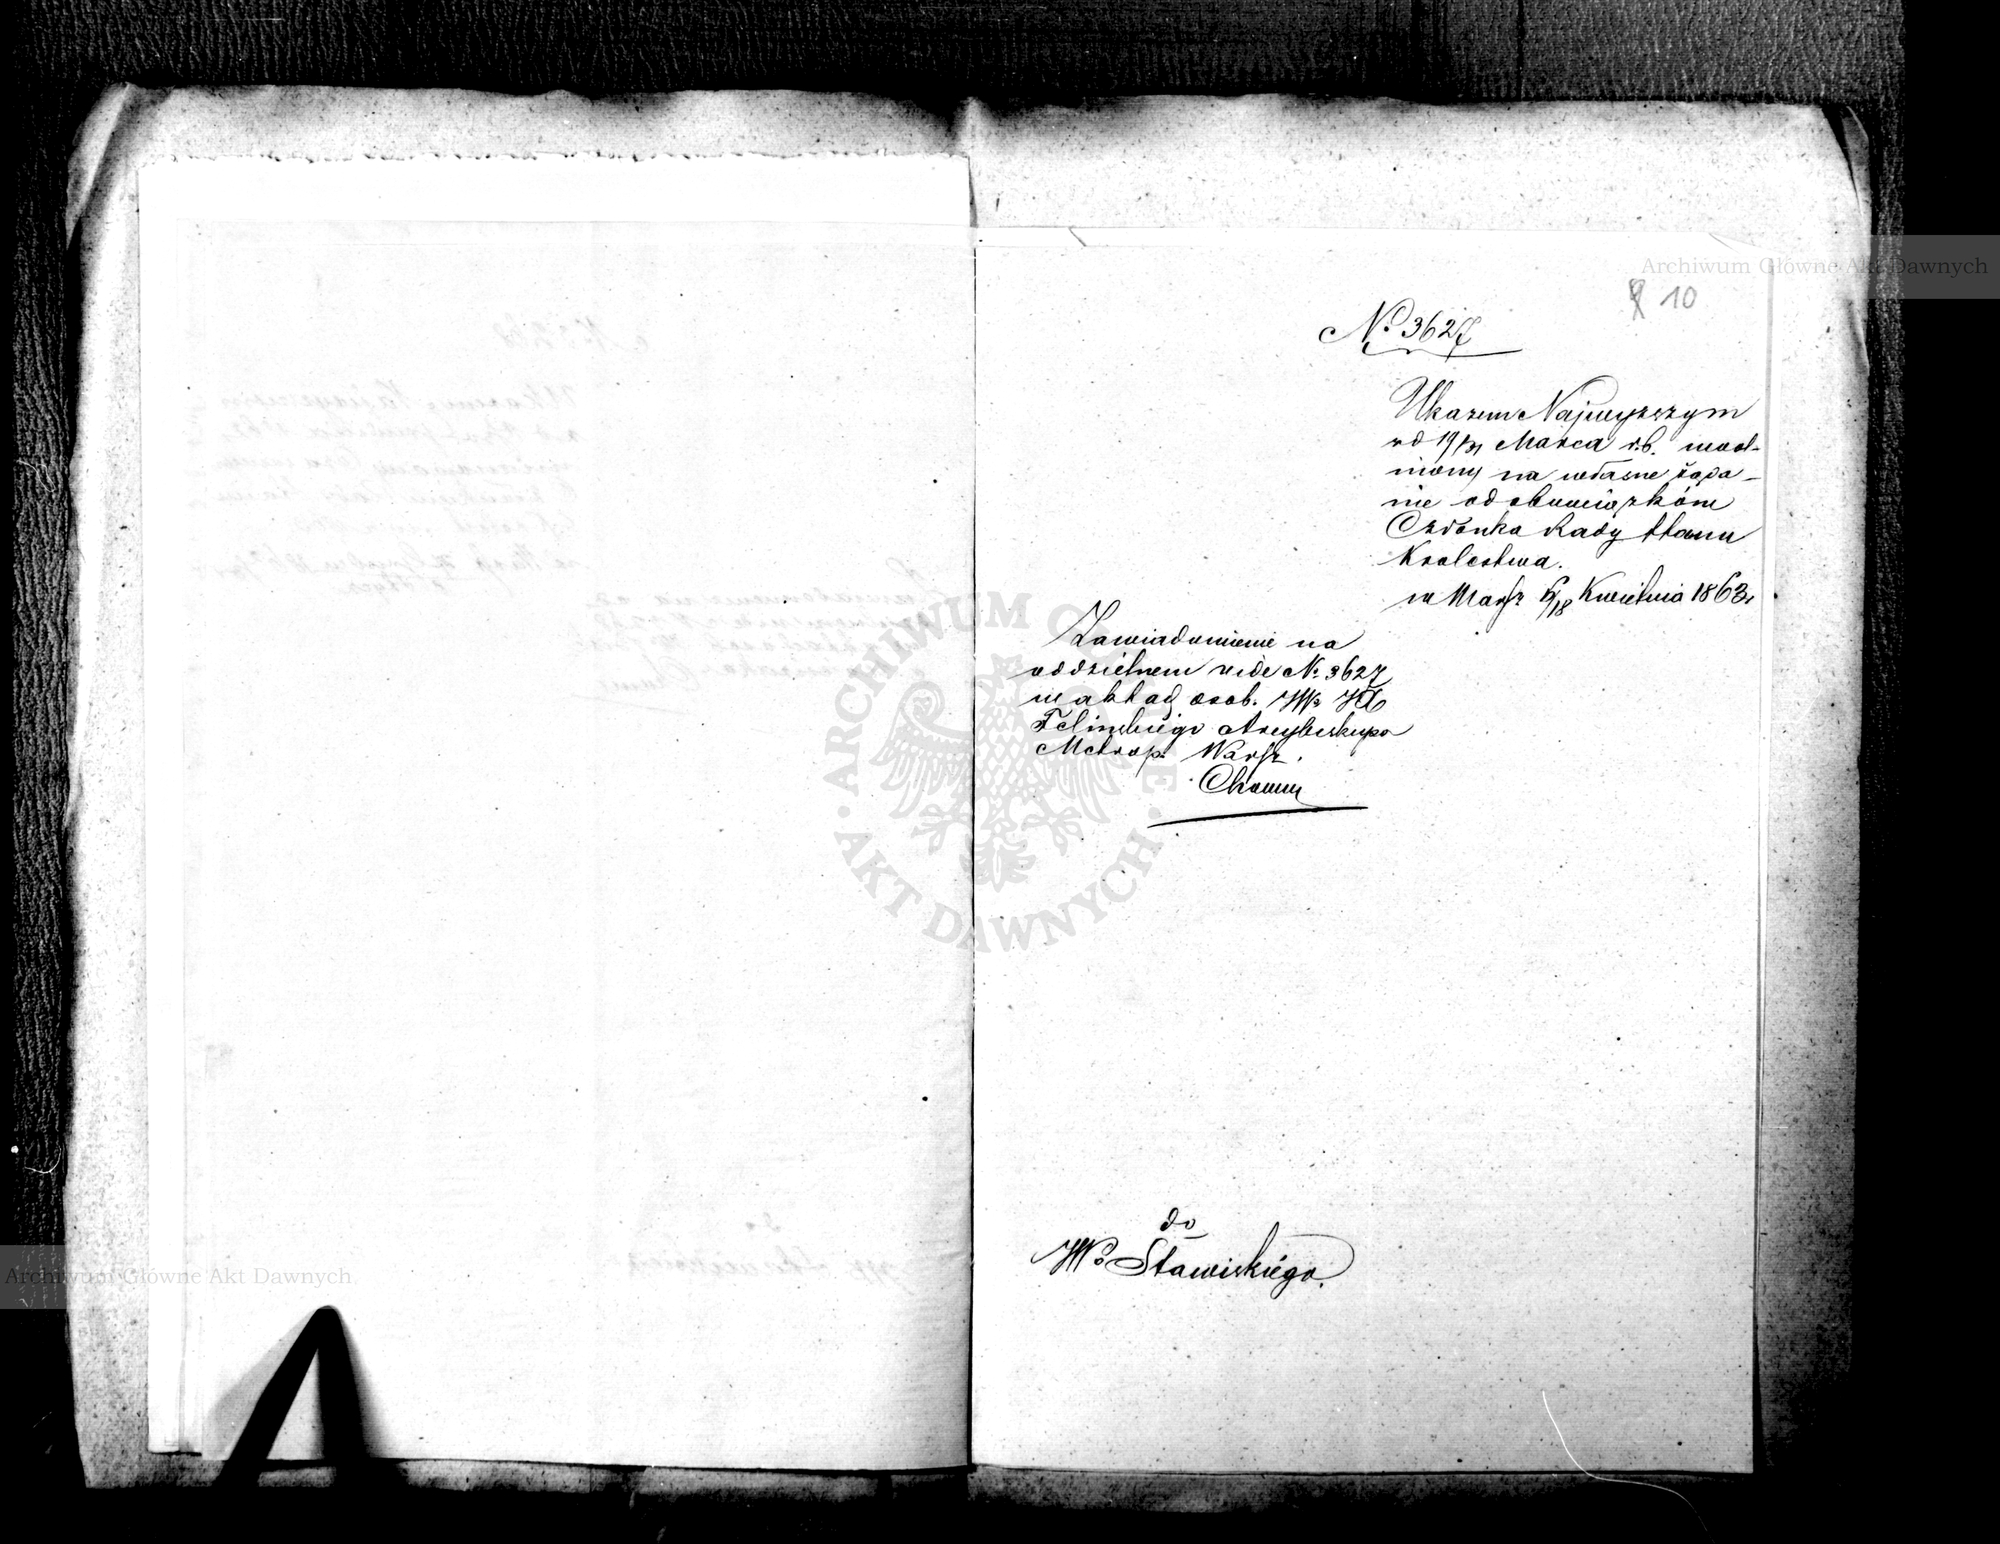 Archiwum Główne Akt Dawnych
9 10
No 3627
Ukazem Najwyższym
od 19/31 Marca r.b. uwol-
niony na własne żąda-
nie od obowiązków
Członka Rady Stanu
Królestwa.
w Warsz 6/18 Kwietnia 1863r
Zawiadomienie na
oddzielnem vide No 3627
w aktach osob. JWo JX
Felińskiego Arcybiskupa
Metrop. Warsz.
do
JWo Stawiskiego.
ARCHIWUM GŁÓWNE
AKT DAWNYCH
Archiwum Główne Akt Dawnych